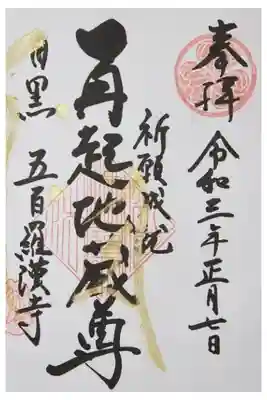 奉拝
令和三年正月七日
祈願成就
再起地蔵尊
目黒
五百羅漢寺